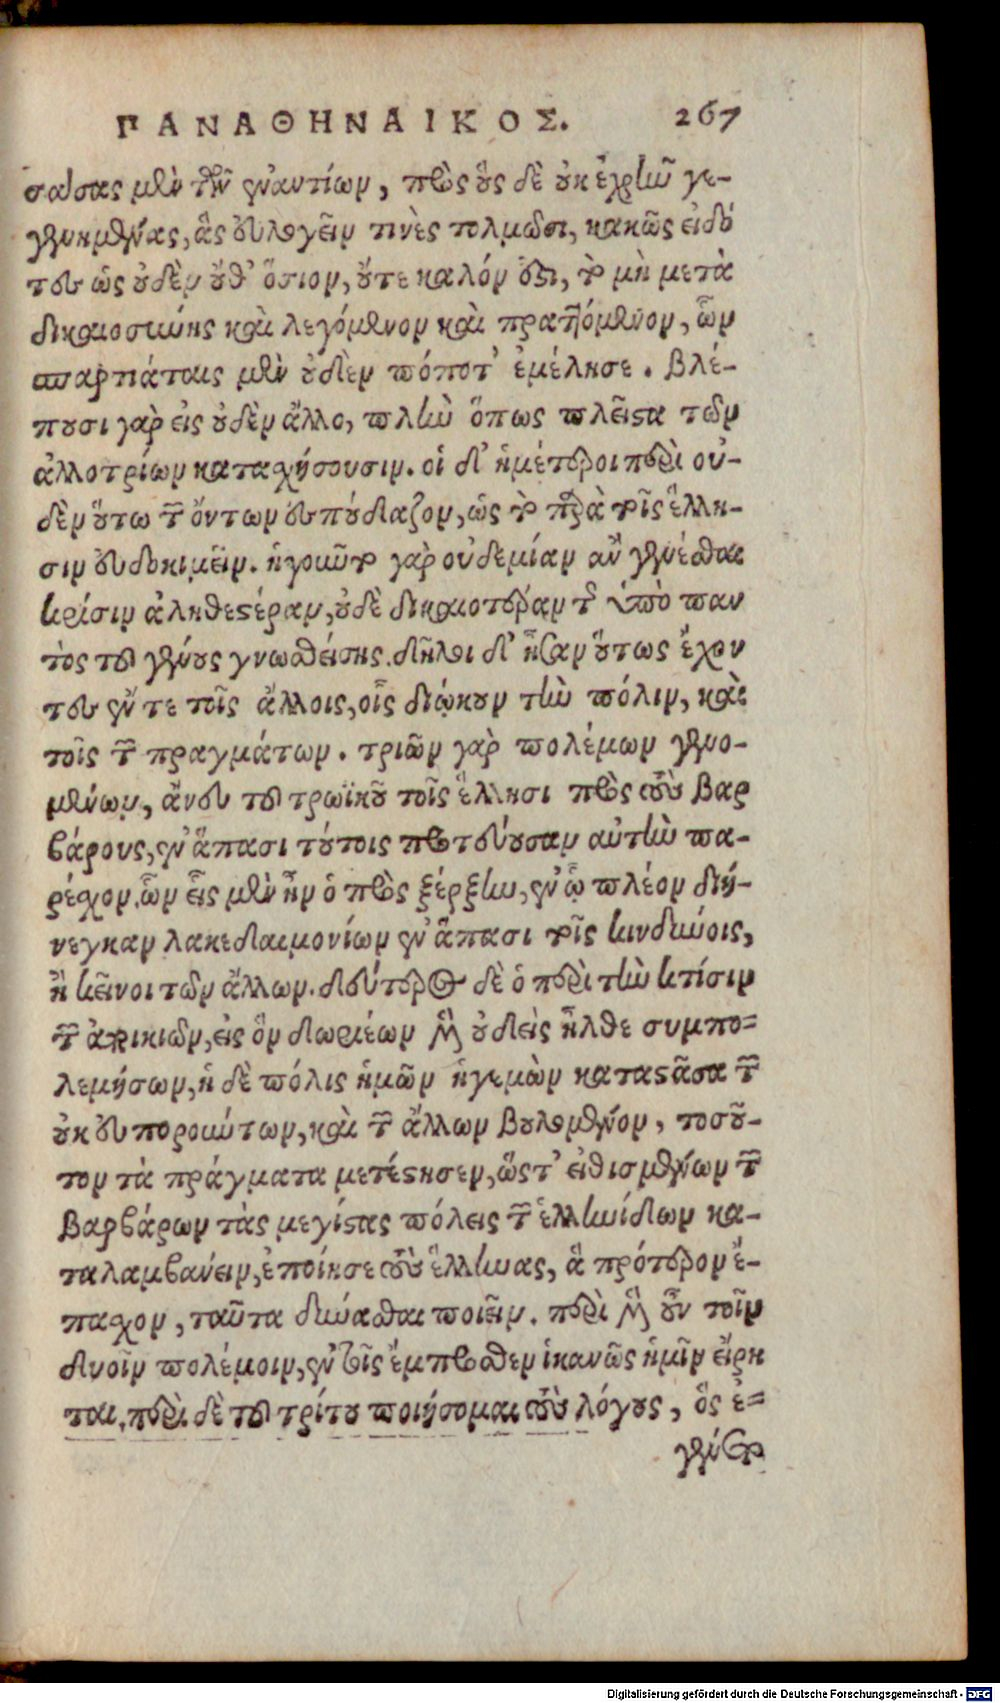 ΠΑΝΑΘΗΝΑΙΚΟΣ. 267
σάσας μὲν τῶν ἐναντίων, πρὸς οὓς δὲ οὐκ ἐχρῆν γε-
γενημένας, ἃς εὐλογεῖν τινὲς τολμῶσι, κακῶς εἰδό
τες ὡς οὐδὲν οὔθ' ὅσιον, οὔτε καλόν ἐστι, τὸ μὴ μετὰ
δικαιοσύνης καὶ λεγόμενον καὶ πραττόμενον, ὧν
σπαρτιάταις μὲν οὐδὲν πόποτ' ἐμέλησε. βλέ-
πουσι γὰρ εἰς οὐδὲν ἄλλο, πλὴν ὅπως πλεῖστα τῶν
ἀλλοτρίων κατασχήσουσιν. οἱ δ' ἡμέτεροι περὶ οὐ-
δὲν οὕτω τῶν ὄντων ἐσπούδαζον, ὡς τὸ παρὰ τοῖς ἕλλη-
σιν εὐδοκιμεῖν. ἡγοῦντο γὰρ οὐδεμίαν ἂν γενέσθαι
κρίσιν ἀληθεστέραν, οὐδὲ δικαιοτέραν τῆς ὑπὸ παν
τὸς τοῦ γένους γνωσθείσης. δῆλοι δ' ἦσαν οὕτως ἔχον
τες ἔν τε τοῖς ἄλλοις, οἷς διῴκουν τὴν πόλιν, καὶ
τοῖς τῶν πραγμάτων. τριῶν γὰρ πολέμων γενο-
μένων, ἄνευ τοῦ τρωϊκοῦ τοῖς ἕλλησι πρὸς τοὺς βαρ
βάρους, ἐν ἅπασι τούτοις πρωτεύουσαν αὐτὴν πα-
ρέσχον. ὧν εἷς μὲν ἦν ὁ πρὸς ξέρξην, ἐν ᾧ πλέον διή-
νεγκαν λακεδαιμονίων ἐν ἅπασι τοῖς κινδύνοις,
ἢ κεῖνοι τῶν ἄλλων. δεύτερος δὲ ὁ περὶ τὴν κτίσιν
τῶν ἀποικιῶν, εἰς ὃν δωριέων μὲν οὐδεὶς ἦλθε συμπο-
λεμήσων, ἡ δὲ πόλις ἡμῶν ἡγεμὼν καταστᾶσα τῶν
οὐκ εὐπορούντων, καὶ τῶν ἄλλων βουλομένον, τοσοῦ-
τον τὰ πράγματα μετέστησεν, ὥστ' εἰθισμένων τῶν
βαρβάρων τὰς μεγίστας πόλεις τῶν ἑλληνίδων κα-
ταλαμβάνειν, ἐποίησε τοὺς ἕλληνας, ἃ πρότερον ἔ-
πασχον, ταῦτα δύνασθαι ποιεῖν. περὶ μὲν οὖν τοῖν
δυοῖν πολέμοιν, ἐν τοῖς ἔμπροσθεν ἱκανῶς ἡμῖν εἴρη
ται. περὶ δὲ τοῦ τρίτου ποιήσομαι τοὺς λόγους, ὃς ἐ-
γένετο
Digitalisierung gefördert durch die Deutsche Forschungsgemeinschaft - DFG